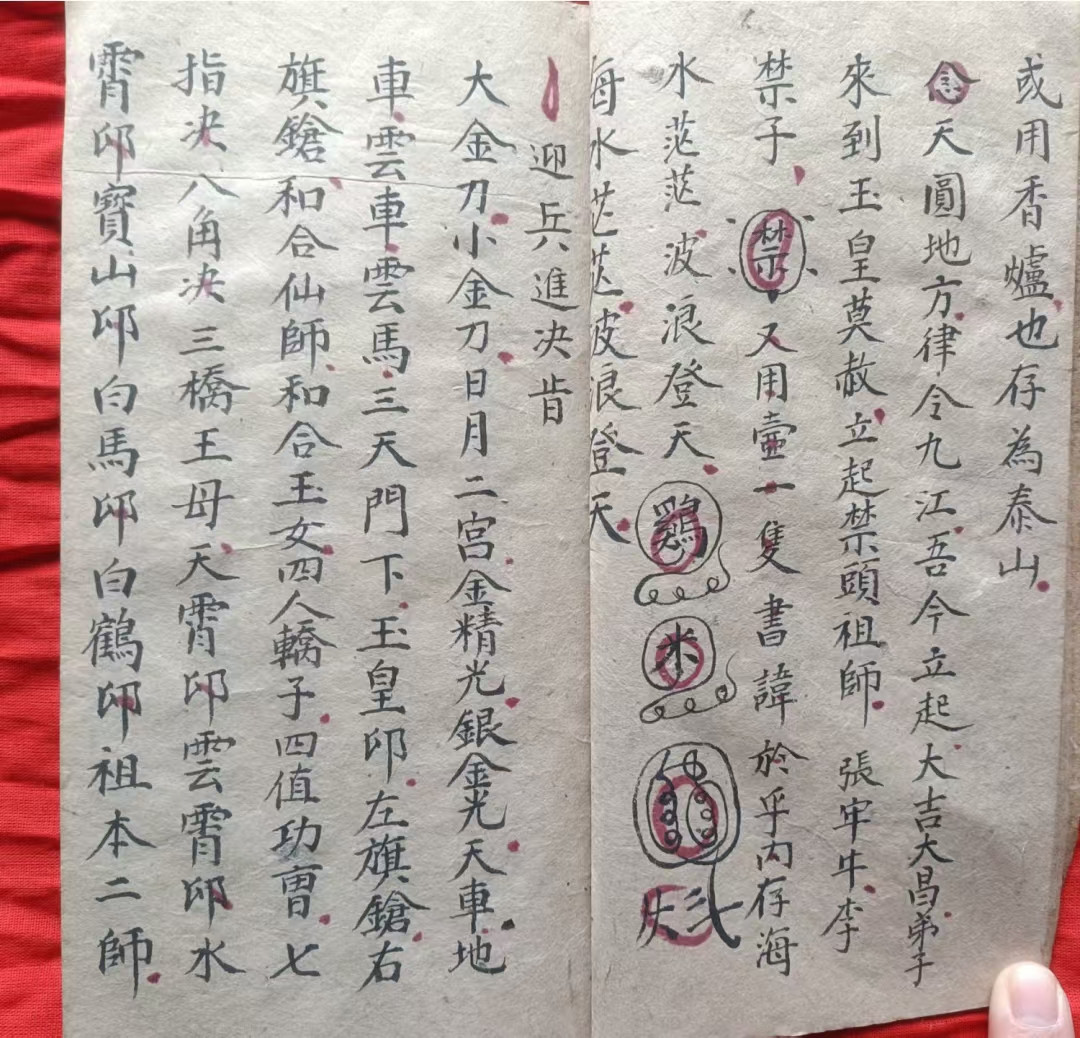 或用香爐也存為泰山
念天圓地方律令九江吾今立起大吉大昌弟子
來到玉皇莫赦立起禁頭祖師張牢牛李
禁子禁又用壺一隻書諱於乎內存海
水茫茫波浪登天鷄米
海水茫茫波浪登天
迎兵進決肯
大金刀小金刀日月二宮金精光銀金光天車地
車雲車雲馬三天門下玉皇印左旗鎗右
旗鎗和合仙師和合玉女四人轎子四值功曹七
指決八角決三橋王母天霄印雲霄印水
霄印寶山印白馬印白鶴印祖本二師